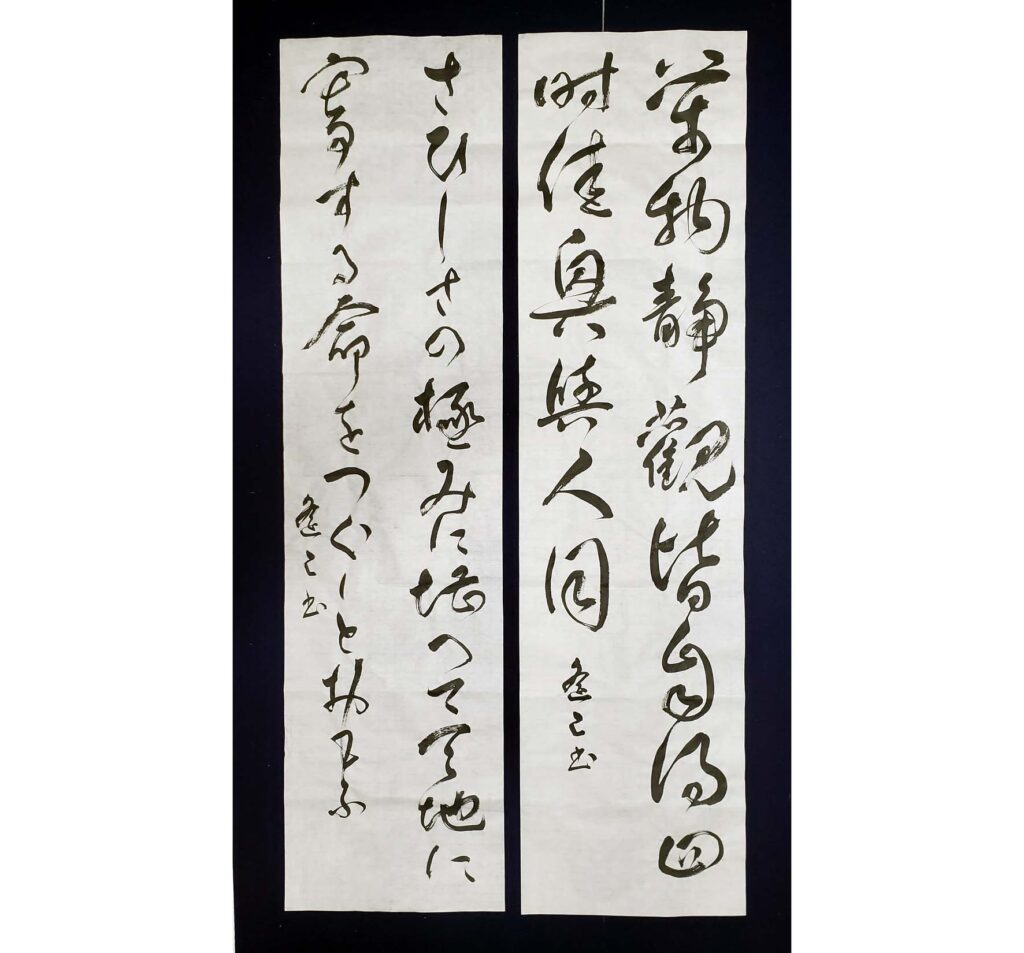 萬物静觀皆自得四
時佳興與人同
さひしさの極みに堪へて天地に
寄する命をつく〱とおもふ